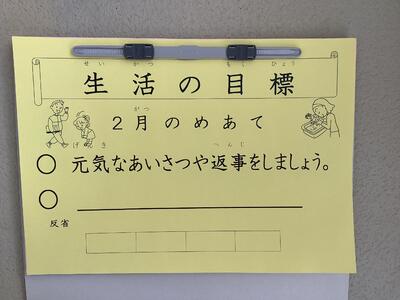 せい かつ もく ひょう
生活の目標
がつ
2月のめあて
げんき へんじ
○ 元気なあいさつや返事をしましょう。
○
反省